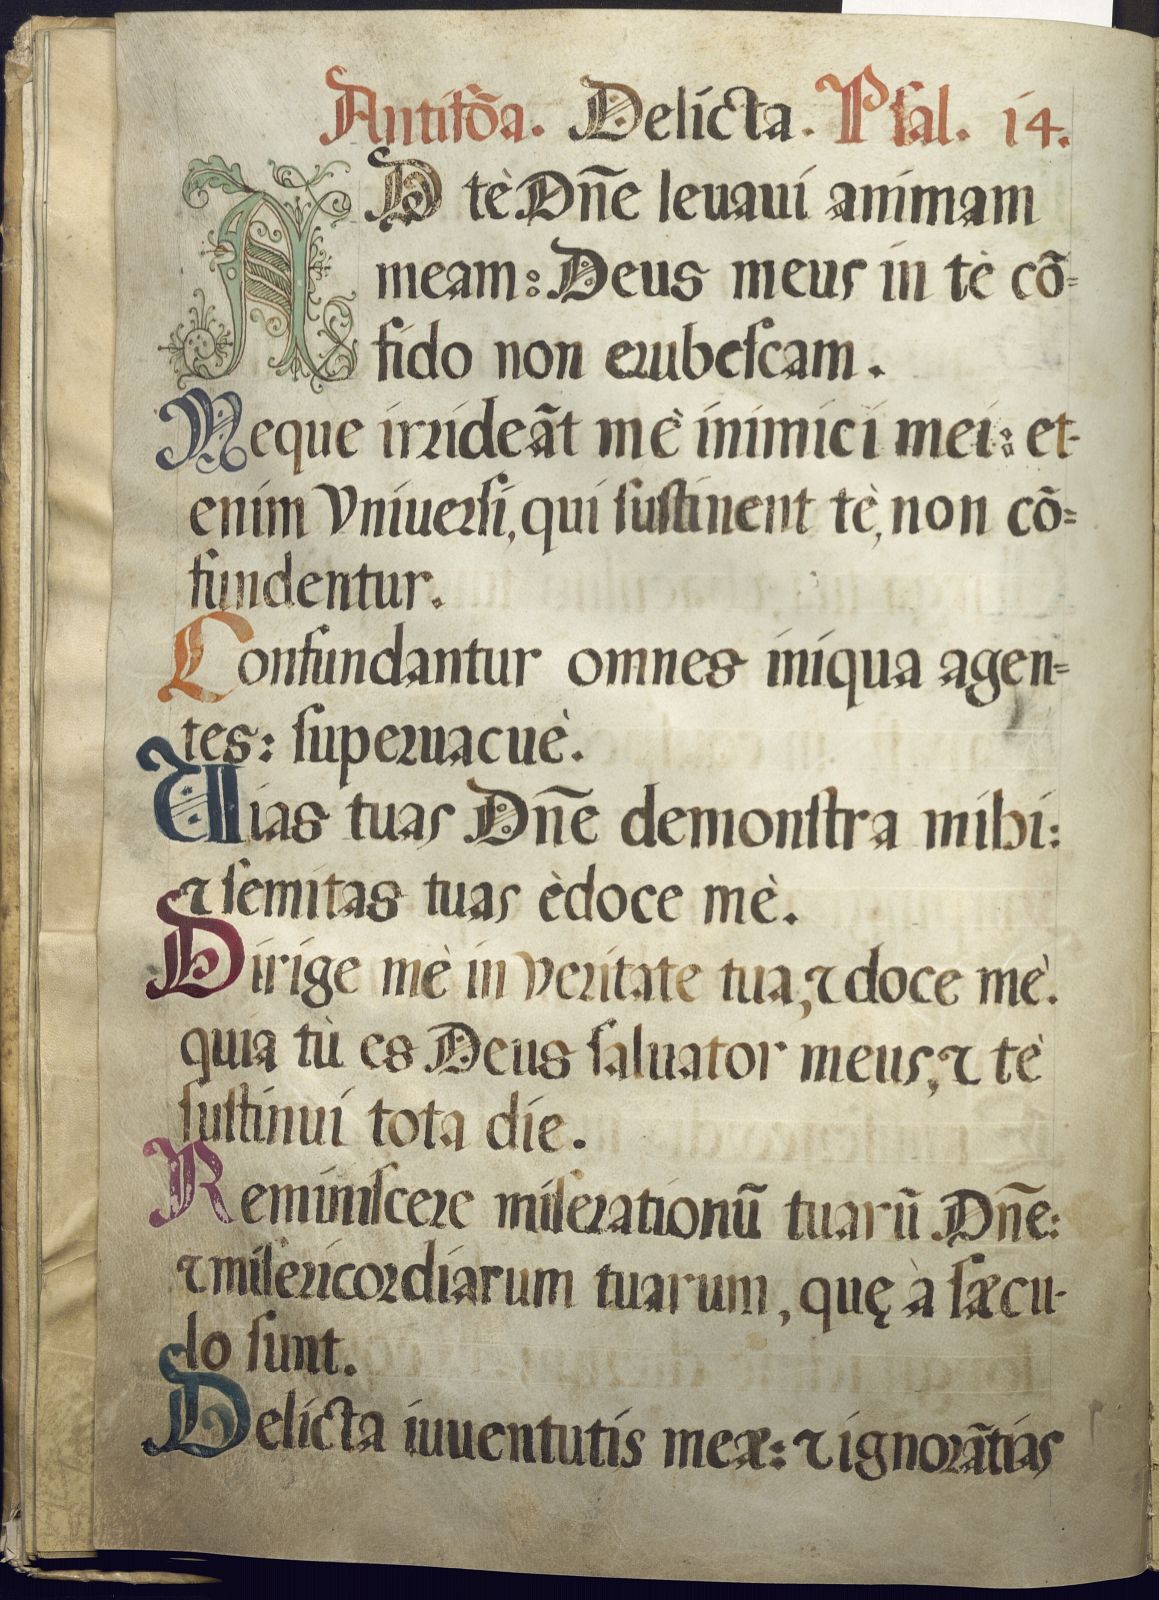 Antifõa. Delicta. Psal. i4.
AD tè Dñe leuaui animam
meam: Deus meus in tè cõ=
fido non erubeſcam.
Neque irrideãt mè inimici mei: et-
enim vniuerſi, qui ſuſtinent tè, non cõ=
fundentur.
Confundantur omnes iniqua agen=
tes: ſuperuacuè.
Uias tuas Dñe demonſtra mihi:
⁊ ſemitas tuas èdoce mè.
Dirige mè in veritate tua, ⁊ doce mè.
quia tù es Deus ſaluator meus, ⁊ tè
ſuſtinui tota die.
Reminiſcere miſerationũ tuarũ Dñe:
⁊ miſericordiarum tuarum, quę à ſæcu-
lo ſunt.
Delicta iuuentutis meæ: ⁊ ignorãtias